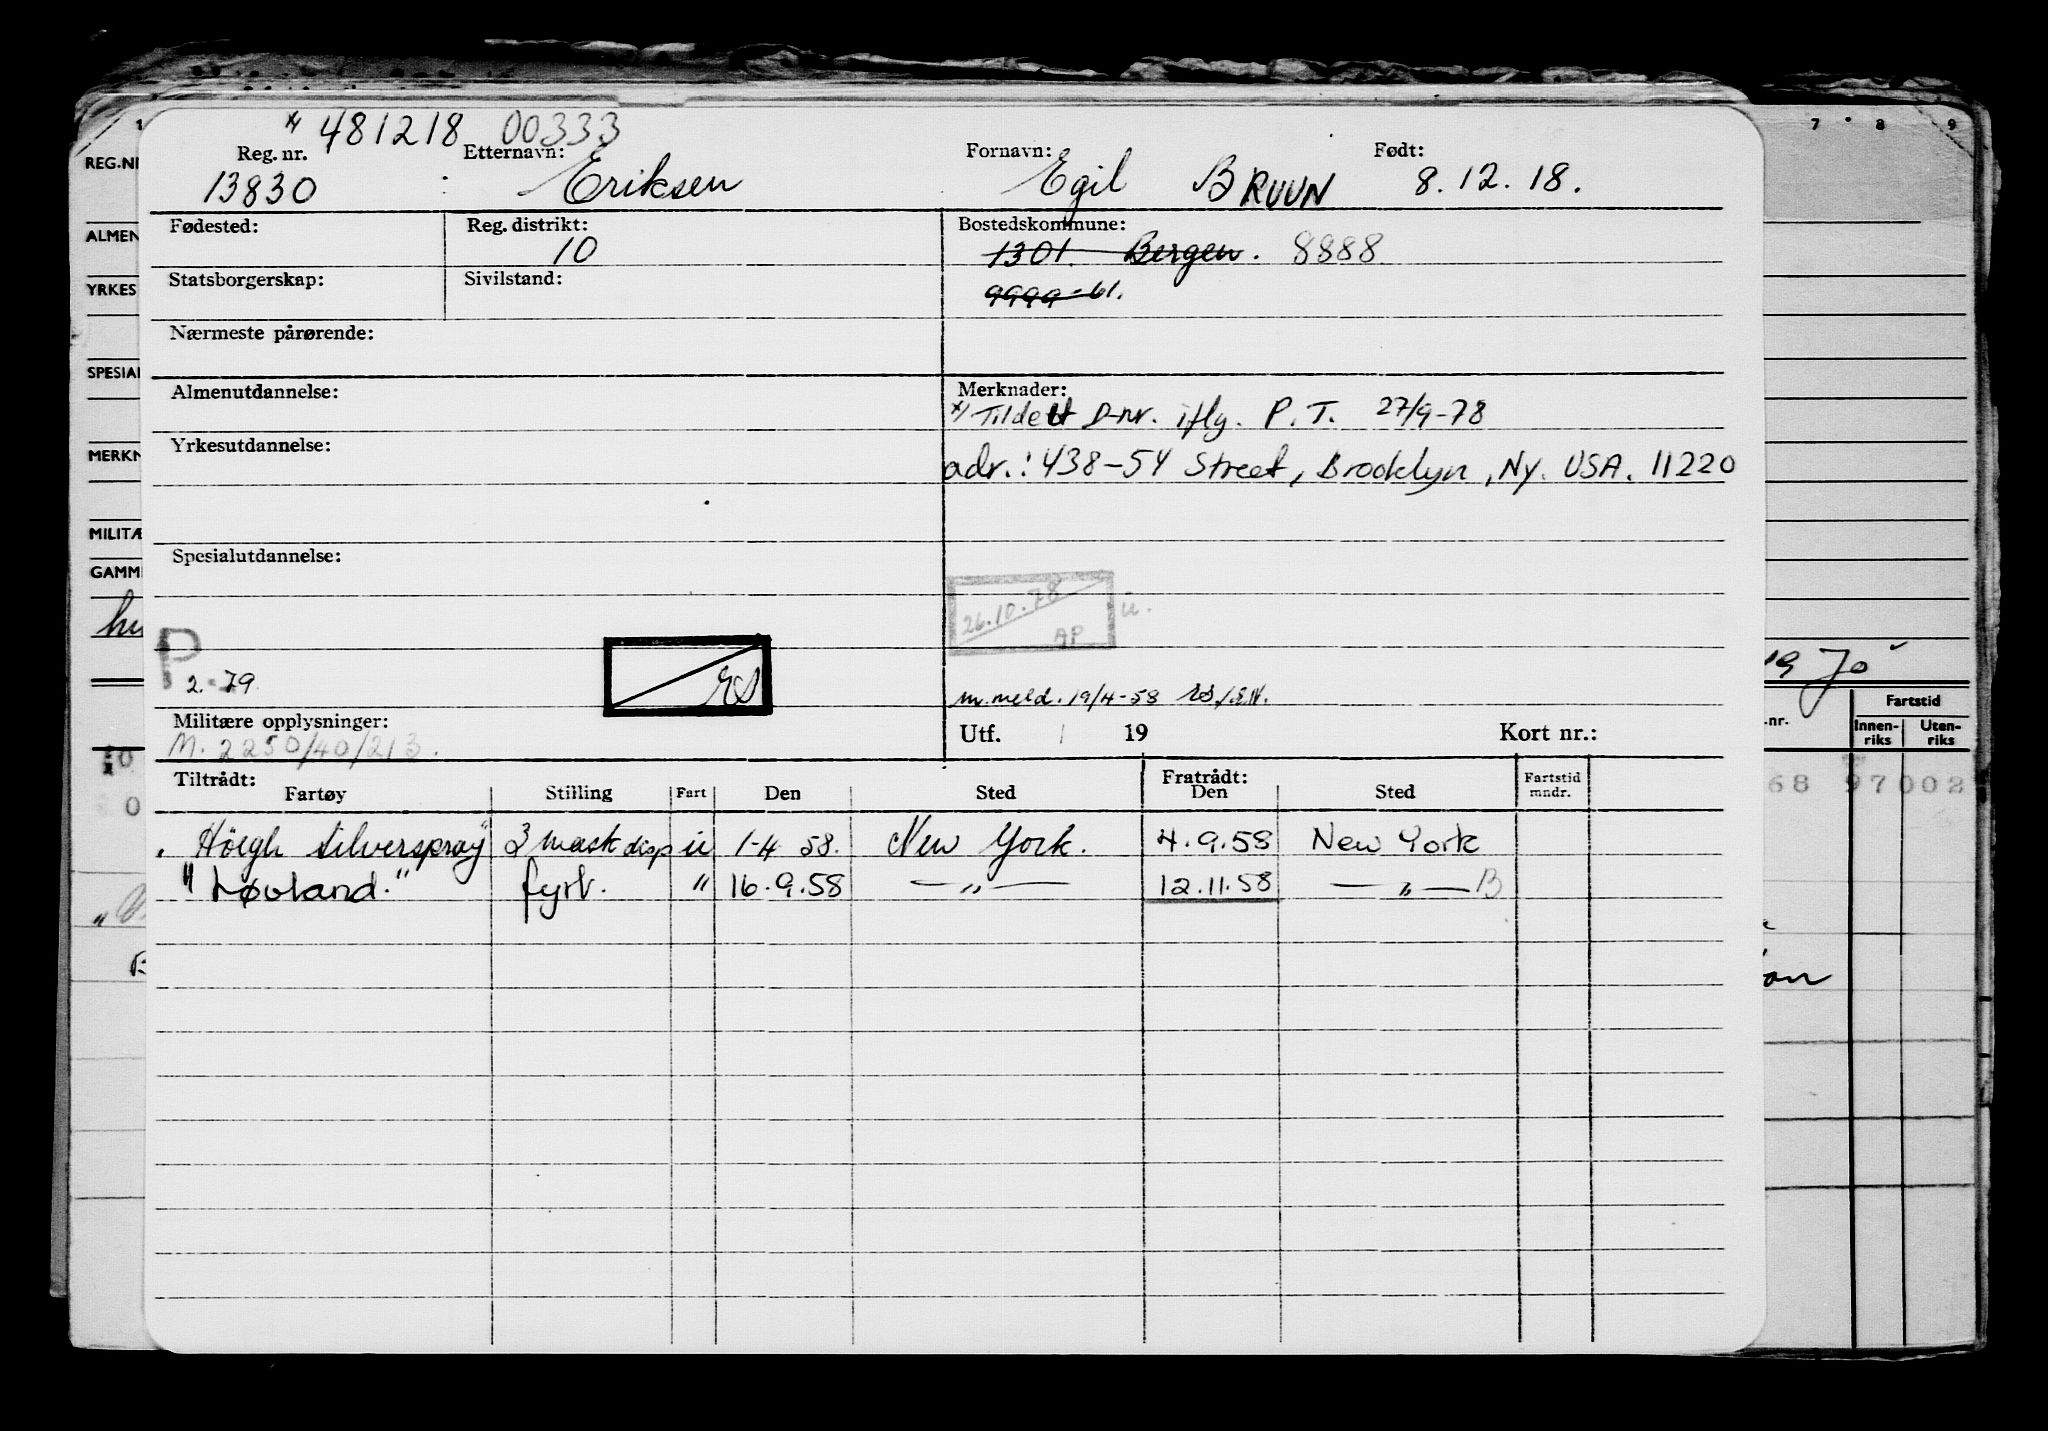 * 481218 00333
Reg. nr. Etternavn: Fornavn: Født:
13830 Eriksen Egil BRUUN 8.12.18.
Fødested: Reg. distrikt: Bostedskommune:
10 1301. Bergen. 8888
Statsborgerskap: Sivilstand:
9999-61.
Nærmeste pårørende:
Almenutdannelse: Merknader:
*) Tildelt D-nr. iflg. P.T. 27/9-78
Yrkesutdannelse:
adr.: 438-54 Street, Brooklyn, NY. USA. 11220
Spesialutdannelse:
26.10.78 ü.
AP
P
2. 79 ES
m.meld. 19/4-58
Militære opplysninger: Utf. / 19 Kort nr.:
M. 2250/40/213.
Tiltrådt: Fratrådt:
Fartøy Stilling Fart Den Sted Den Sted Fartstid mndr.
"Höegh Silverspray" 3 mask disp u 1-4 58. New York. 4.9.58 New York
"Løvland." fyrb. " 16.9.58 —„— 12.11.58 —„— B
REG.N
ALMEN
YRKES
SPESIAL
MERKN
MILITÆ
GAMM
7 8 9
.nr.
Fartstid
Innen-riks Uten-riks
68 97002